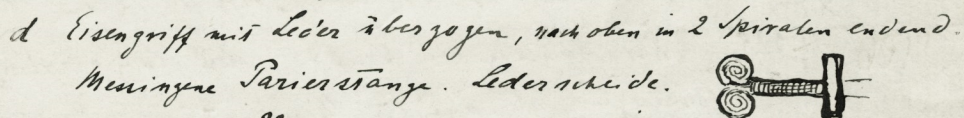 d Eisengriff mit Leder überzogen, nach oben in 2 Spiralen endend.
Messingene Parierstange. Lederscheide.